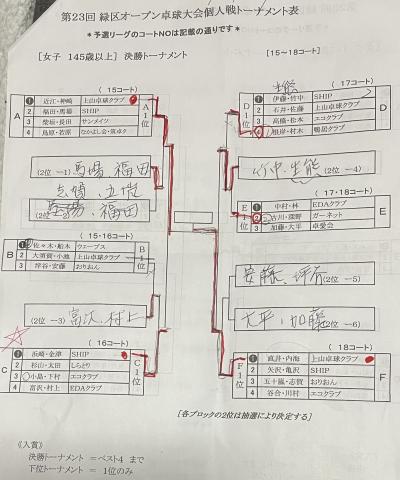 第23回 緑区オープン卓球大会個人戦トーナメント表
*予選リーグのコートNOは記載の通りです*
[女子 145歳以上] 決勝トーナメント
[15~18コート]
(15コート)
A
1 近江・神崎 上山卓球クラブ
2 福田・馬場 SHIP
3 柴垣・長田 サンメイツ
4 鳥原・若原
A1位
(2位 -1) 馬場、福田
(2位 福田
(15・16コート)
B
1 佐々木・船木 ウェーブス
2 大須賀・小池 上山卓球クラブ
3 坪谷・安藤 おりおん
B1位
(2位 -3) 富沢、村上
(16コート)
C
1 浜崎・金津 SHIP
2 杉山・太田 しらとり
3 小島・下村 エコクラブ
4 富沢・村上 EDAクラブ
C1位
生能
(17コート)
D
1 伊藤・竹中 SHIP
2 石井・佐藤 上山卓球クラブ
3 高橋・松本 エコクラブ
4 根岸・村木 鴨居クラブ
D1位
竹中、生能 (2位 -4)
(17・18コート)
E
1 中村・林 EDAクラブ
2 古川・深野 ガーネット
3 加藤・大平 卓愛会
E1位
安藤、坪谷 (2位 -5)
大平、加藤 (2位 -6)
(18コート)
F
1 直井・内海 上山卓球クラブ
2 矢沢・亀沢 SHIP
3 五十嵐・志賀 おりおん
4 谷合・川村 エコクラブ
F1位
[各ブロックの2位は抽選により決定する]
《入賞》
決勝トーナメント =ベスト4 まで
下位トーナメント = 1位のみ